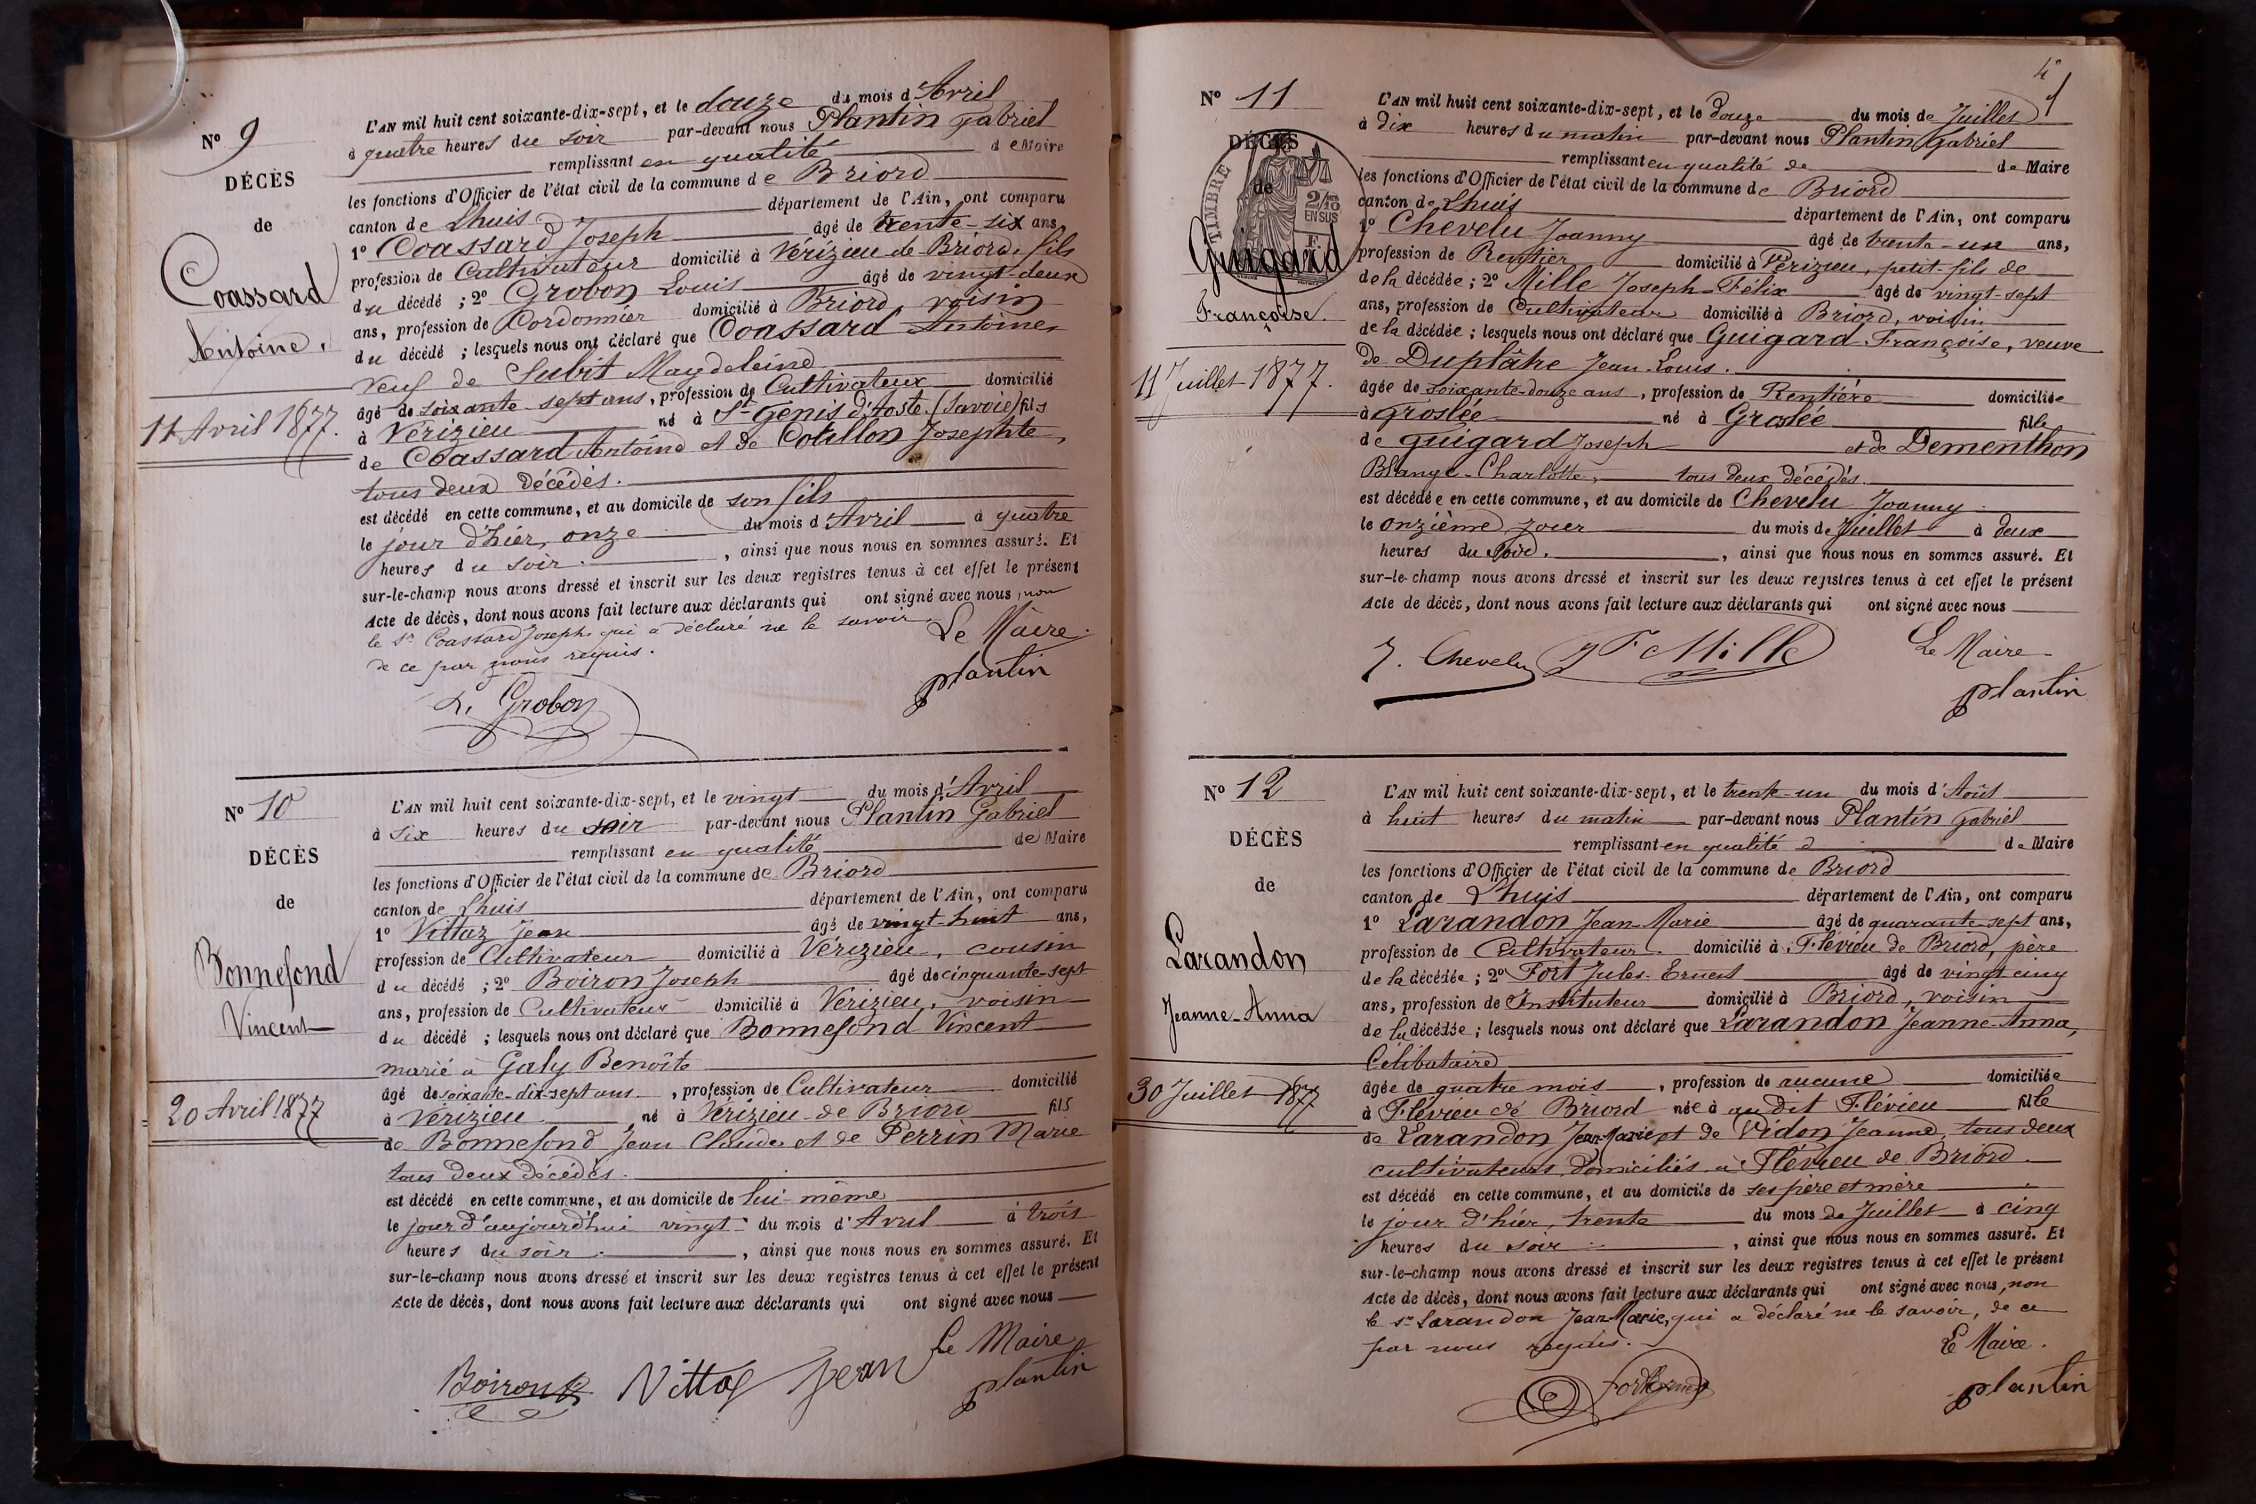 Nº 9
DÉCÈS
de
Coassard
Antoine.
11 Avril 1877.
L'AN mil huit cent soixante-dix-sept, et le douze du mois d'Avril
à quatre heures du soir par-devant nous Plantin Gabriel
remplissant en qualité de Maire
les fonctions d'Officier de l'état civil de la commune de Briord
canton de Lhuis département de l'Ain, ont comparu
1º Coassard Joseph âgé de trente-six ans,
profession de Cultivateur domicilié à Vérizieu de Briord, fils
du décédé ; 2º Grobon Louis âgé de vingt-deux
ans, profession de Cordonnier domicilié à Briord, voisin
du décédé ; lesquels nous ont déclaré que Coassard Antoine,
veuf de Subit Maydeleine
âgé de soixante-sept ans, profession de Cultivateur domicilié
à Vérizieu né à St Genis d'Aoste (Savoie) fils
de Coassard Antoine et de Cotillon Josephte,
tous deux décédés.
est décédé en cette commune, et au domicile de son fils
le jour d'hier, onze du mois d'Avril à quatre
heures du soir. , ainsi que nous nous en sommes assuré. Et
sur-le-champ nous avons dressé et inscrit sur les deux registres tenus à cet effet le présent
Acte de décès, dont nous avons fait lecture aux déclarants qui ont signé avec nous, non
le sr Coassard Joseph qui a déclaré ne le savoir
de ce par nous requis.
Le Maire.
L. Grobon
Plantin
Nº 10
DÉCÈS
de
Bonnefond
Vincent
20 Avril 1877
L'AN mil huit cent soixante-dix-sept, et le vingt du mois d'Avril
à six heures du soir par-devant nous Plantin Gabriel
remplissant en qualité de Maire
les fonctions d'Officier de l'état civil de la commune de Briord
canton de Lhuis département de l'Ain, ont comparu
1º Vittaz Jean âgé de vingt-huit ans,
profession de Cultivateur domicilié à Vérizieu, cousin
du décédé ; 2º Boiron Joseph âgé de cinquante-sept
ans, profession de Cultivateur domicilié à Vérizieu, voisin
du décédé ; lesquels nous ont déclaré que Bonnefond Vincent
marié à Galy Benoîte
âgé de soixante-dix-sept ans, profession de Cultivateur domicilié
à Vérizieu né à Vérizieu de Briord fils
de Bonnefond Jean Claude et de Perrin Marie
tous deux décédés.
est décédé en cette commune, et au domicile de lui-même
le jour d'aujourd'hui vingt du mois d'Avril à trois
heures du soir. , ainsi que nous nous en sommes assuré. Et
sur-le-champ nous avons dressé et inscrit sur les deux registres tenus à cet effet le présent
Acte de décès, dont nous avons fait lecture aux déclarants qui ont signé avec nous
Le Maire
Boiron Vittaz Jean
Plantin
4
Nº 11
DÉCÈS
de
TIMBRE
2/10
EN SUS
Guigard
Françoise.
11 Juillet 1877.
L'AN mil huit cent soixante-dix-sept, et le douze du mois de Juillet
à dix heures du matin par-devant nous Plantin Gabriel
remplissant en qualité de de Maire
les fonctions d'Officier de l'état civil de la commune de Briord
canton de Lhuis département de l'Ain, ont comparu
1º Chevelu Joanny âgé de trente-un ans,
profession de Rentier domicilié à Vérizieu, petit-fils de
de la décédée ; 2º Mille Joseph-Félix âgé de vingt-sept
ans, profession de Cultivateur domicilié à Briord, voisin
de la décédée ; lesquels nous ont déclaré que Guigard Françoise, veuve
de Duplâtre Jean-Louis.
âgée de soixante-douze ans, profession de Rentière domiciliée
à Groslée né à Groslée fille
de Guigard Joseph et de Dementhon
Blange-Charlotte, tous deux décédés.
est décédée en cette commune, et au domicile de Chevelu Joanny
le onzième jour du mois de Juillet à deux
heures du soir. , ainsi que nous nous en sommes assuré. Et
sur-le-champ nous avons dressé et inscrit sur les deux registres tenus à cet effet le présent
Acte de décès, dont nous avons fait lecture aux déclarants qui ont signé avec nous
J. Chevelu J F Mille
Le Maire
Plantin
Nº 12
DÉCÈS
de
Larandon
Jeanne-Anna
30 Juillet 1877
L'AN mil huit cent soixante-dix-sept, et le trente-un du mois d'Août
à huit heures du matin par-devant nous Plantin Gabriel
remplissant en qualité d de Maire
les fonctions d'Officier de l'état civil de la commune de Briord
canton de Lhuis département de l'Ain, ont comparu
1º Larandon Jean-Marie âgé de quarante-sept ans,
profession de Cultivateur domicilié à Flévieu de Briord, père
de la décédée ; 2º Fort Jules-Ernest âgé de vingt cinq
ans, profession de Instituteur domicilié à Briord, voisin
de la décédée ; lesquels nous ont déclaré que Larandon Jeanne-Anna,
Célibataire
âgée de quatre mois, profession de aucune domiciliée
à Flévieu de Briord née à au dit Flévieu fille
de Larandon Jean-Marie et de Vidon Jeanne, tous deux
cultivateurs domiciliés à Flévieu de Briord.
est décédé en cette commune, et au domicile de ses père et mère
le jour d'hier, trente du mois de Juillet à cinq
heures du soir , ainsi que nous nous en sommes assuré. Et
sur-le-champ nous avons dressé et inscrit sur les deux registres tenus à cet effet le présent
Acte de décès, dont nous avons fait lecture aux déclarants qui ont signé avec nous, non
le sr Larandon Jean-Marie, qui a déclaré ne le savoir, de ce
par nous requis.
Le Maire.
Plantin